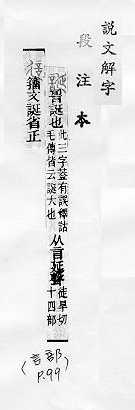 說文解字
段注本
詞誕也此三字葢有誤釋詁
毛傳皆云誕大也从言延聲徒旱切
十四部
籒文誕省正
(言部)
P.99